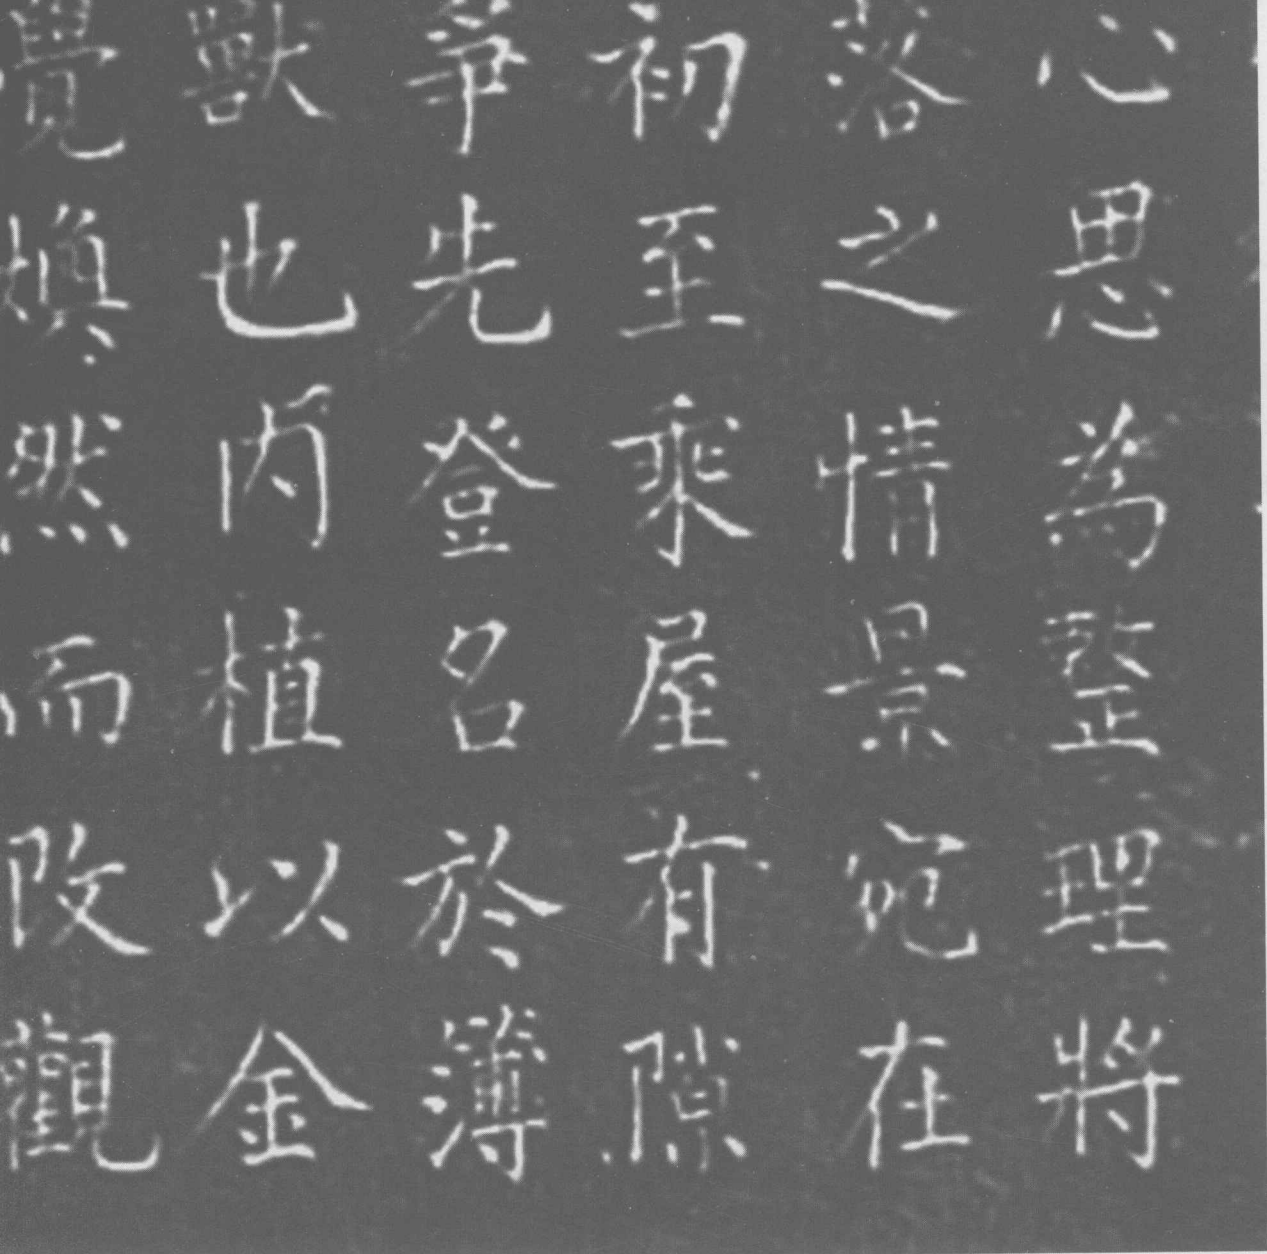 心思為整理將
落之情景宛在
初至乘屋有隙
爭先登名於簿
獸也內植以金
覺煥然而改觀